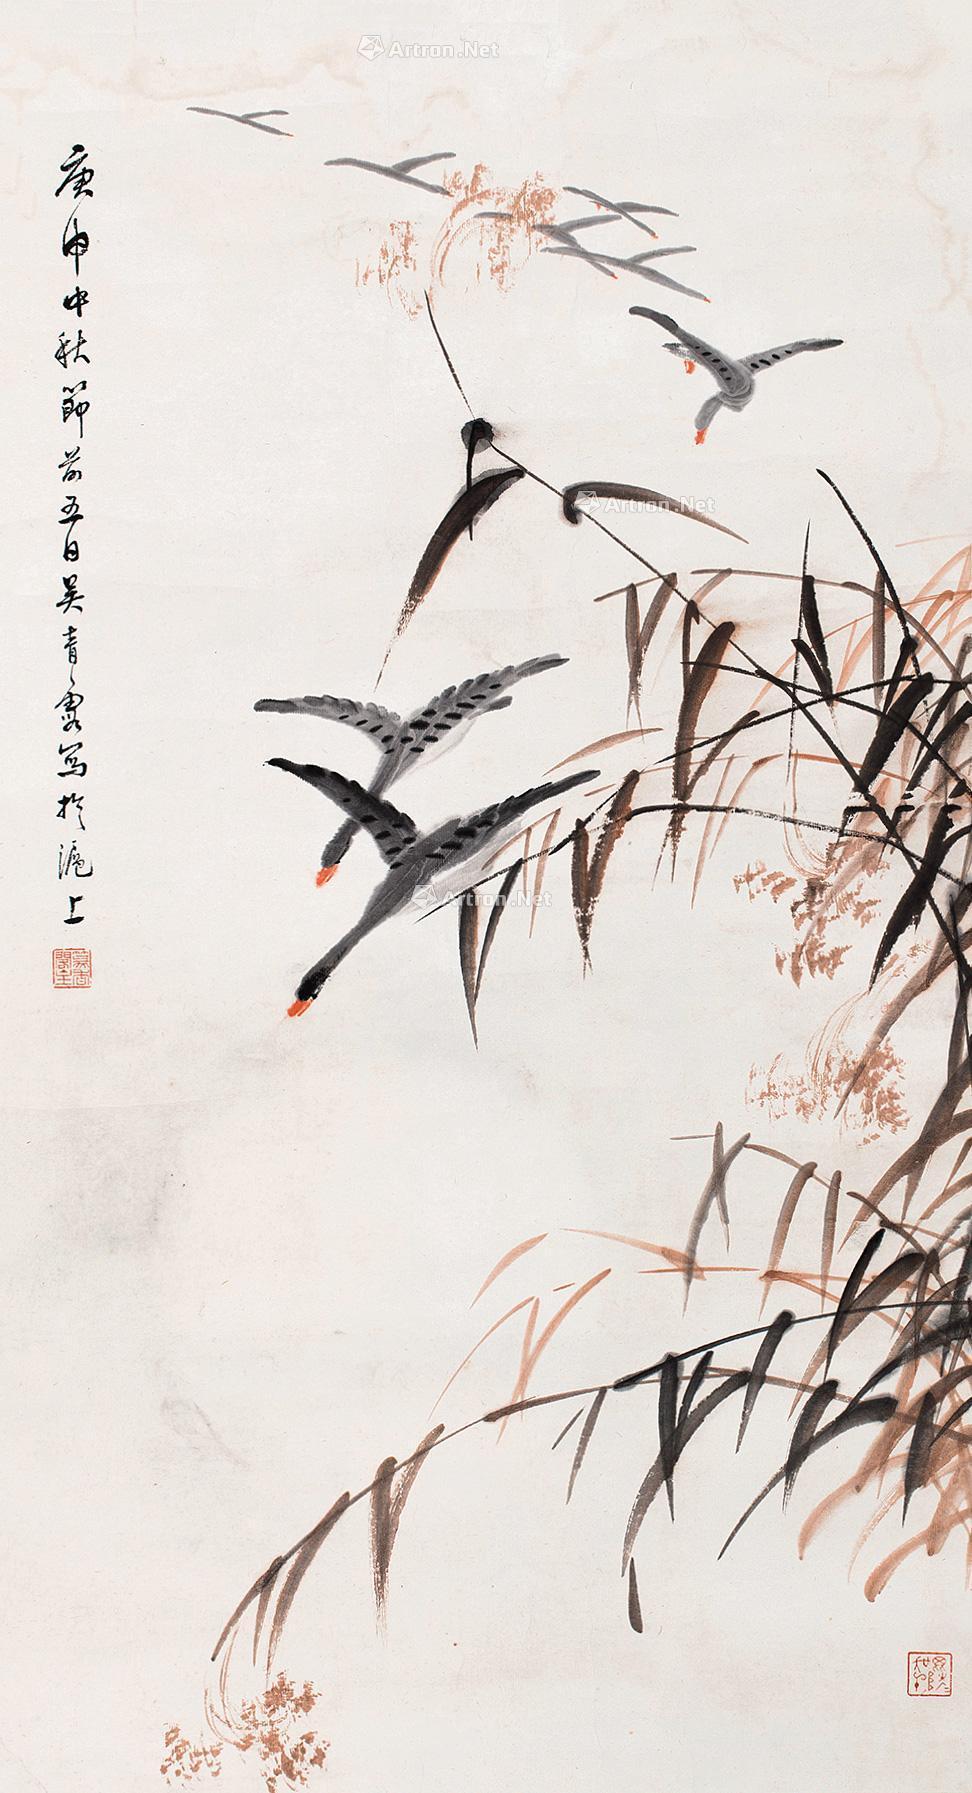 Artron.Net
庚申中秋節前五日吴青霞写於滬上
Artron.Net
Artron.Net